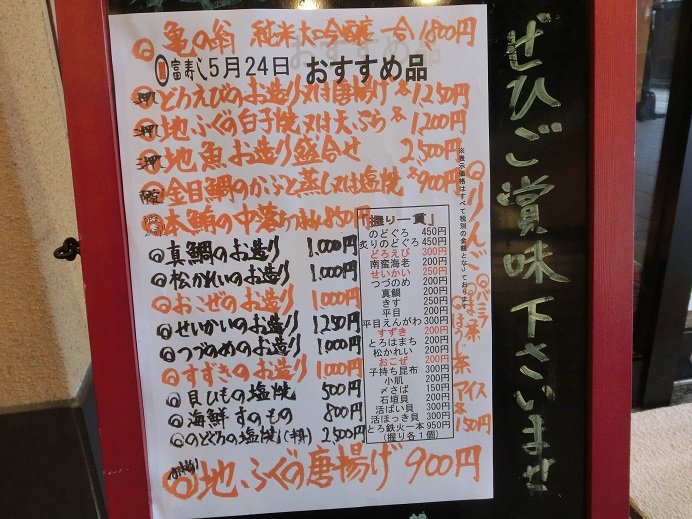 ◎亀の翁 純米大吟醸 一合1,800円
富寿し5月24日 おすすめ品
どろえびのお造り又は唐揚げ各1,250円
地ふぐの白子焼又は天ぷら各1,200円
地魚お造り盛合せ 2,500円
金目鯛のかぶと蒸し又は塩焼各900円
本鮪の中落ち 850円
◎真鯛のお造り 1,000円
◎松かれいのお造り 1,000円
◎おこぜのお造り 1,000円
◎せいかいのお造り 1,250円
◎つづめのお造り 1,000円
◎すずきのお造り 1,000円
◎貝ひもの塩焼 500円
◎海鮮すのもの 800円
◎のどぐろの塩焼(半身) 2,500円
◎地ふぐの唐揚げ 900円
「握り一貫」
のどぐろ 450円
炙りのどぐろ 450円
どろえび 300円
南蛮海老 200円
せいかい 250円
つづのめ 200円
真鯛 200円
きす 250円
平目 200円
平目えんがわ 300円
すずき 200円
とろはまち 200円
松かれい 200円
おこぜ 200円
子持ち昆布 300円
小肌 200円
〆さば 150円
石垣貝 200円
活ばい貝 300円
活ほっき貝 300円
とろ鉄火一本 950円
(握り各1個)
※表示価格はすべて税別の金額となっております
◎りんご
◎バニラ
◎ほうじ茶
アイス
各150円
ぜひご賞味下さいませ